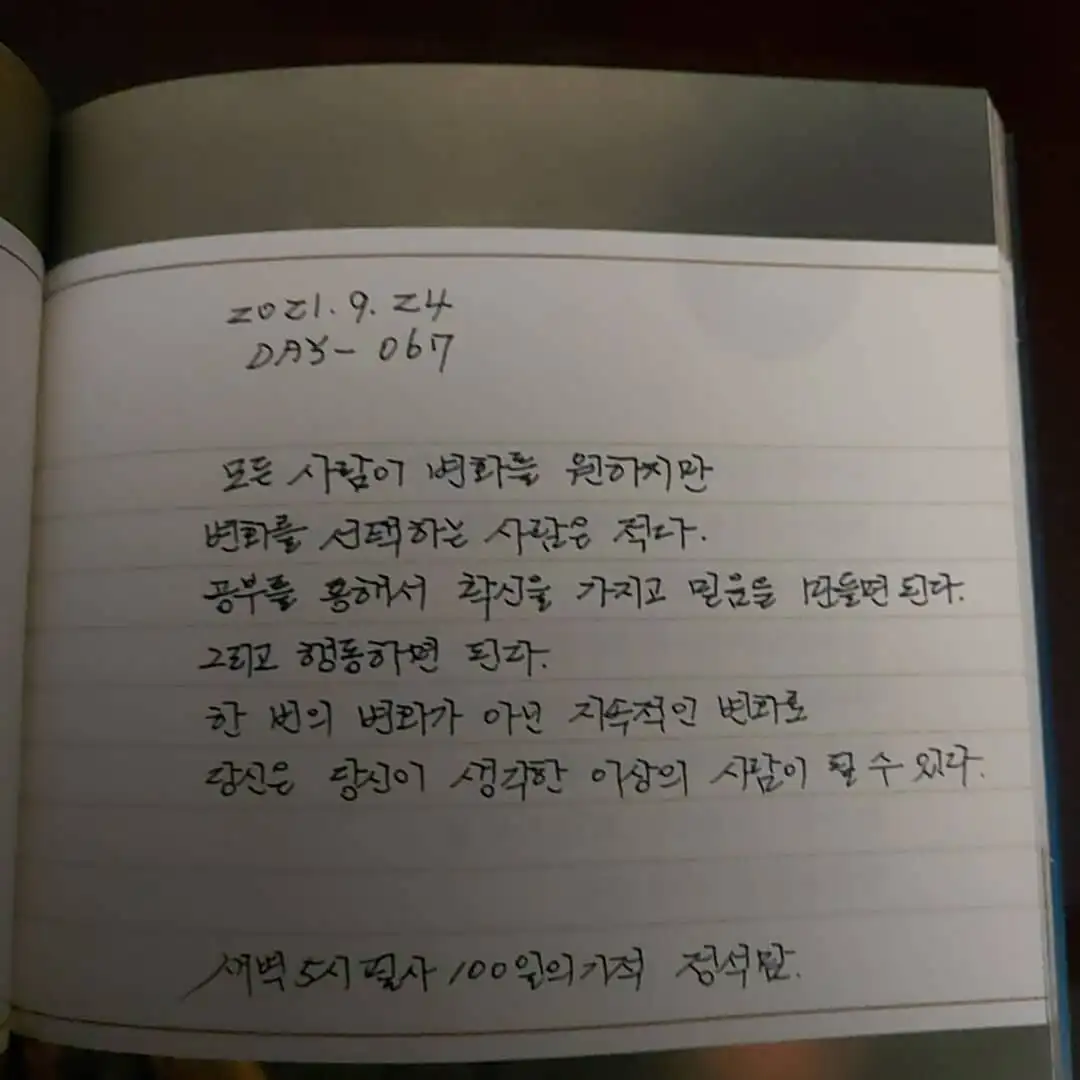 2021.9.24
DAY- 067
모든 사람이 변화를 원하지만
변화를 선택하는 사람은 적다.
공부를 통해서 확신을 가지고 믿음을 만들면 된다.
그리고 행동하면 된다.
한 번의 변화가 아닌 지속적인 변화로
당신은 당신이 생각한 이상의 사람이 될 수 있다.
새벽 5시 필사 100일의 기적